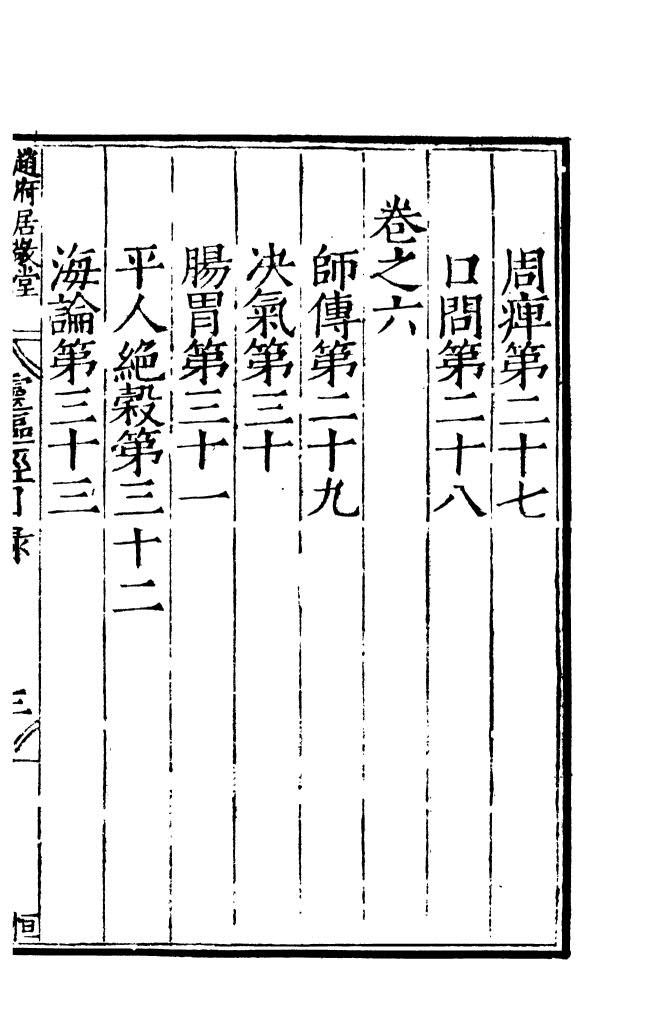 周痺第二十七
口問第二十八
卷之六
師傳第二十九
决氣第三十
腸胃第三十一
平人絶穀第三十二
海論第三十三
趙府居敬堂
靈樞經目錄
三
恒